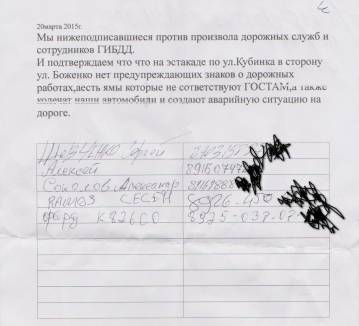 20марта 2015г.
Мы нижеподписавшиеся против произвола дорожных служб и
сотрудников ГИБДД.
И подтверждаем что что на эстакаде по ул.Кубинка в сторону
ул. Боженко нет предупреждающих знаков о дорожных
работах,аесть ямы которые не сответствуют ГОСТАМ,а также
калечат наши автомобили и создают аварийную ситуацию на
дороге.
Сергей
Алексей
Соколов Александр
Форд К826СО 8925-037-07